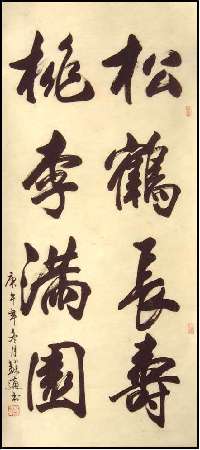 松鶴長壽
桃李滿園
庚午年冬月